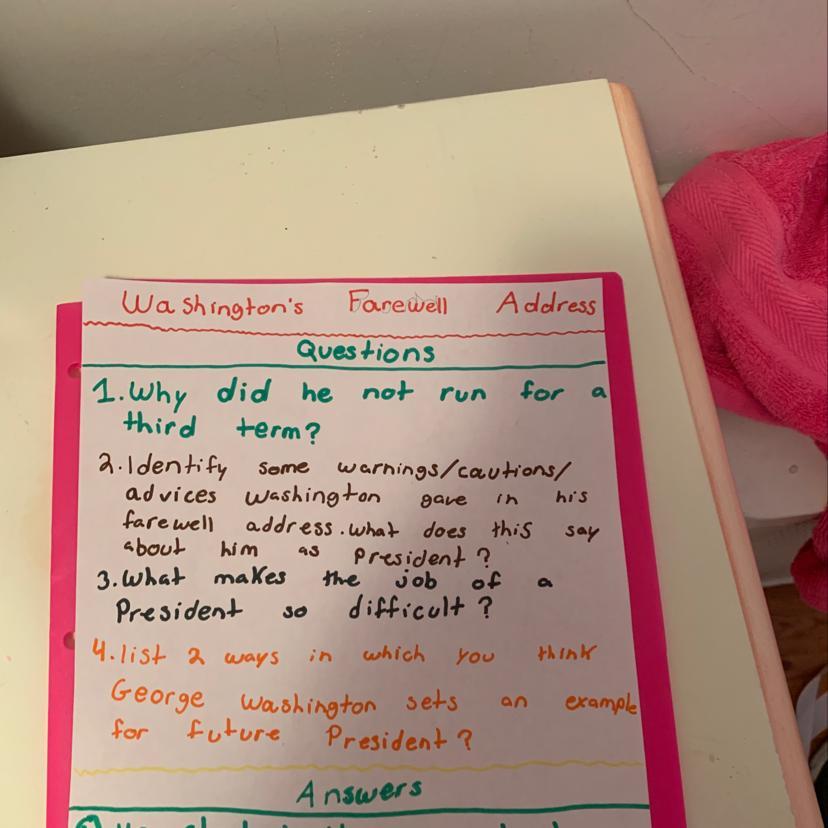 Washington's Farewell Address
Questions
1. Why did he not run for a
third term?
2. Identify some warnings/cautions/
advices Washington gave in his
farewell address. what does this say
about him as President?
3. What makes the job of a
President so difficult?
4. list 2 ways in which you think
George Washington sets an example
for future President?
Answers